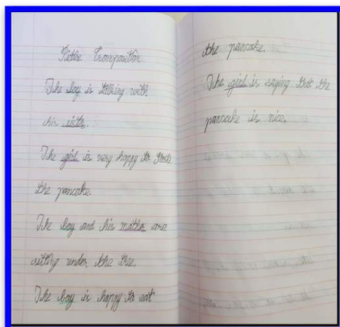 Picture Composition
The boy is talking with
his sister.
The girl is very happy to
the pancake.
The boy and his mother are
sitting under the tree.
The boy is happy to eat
the pancake.
The girl is saying that the
pancake is nice.